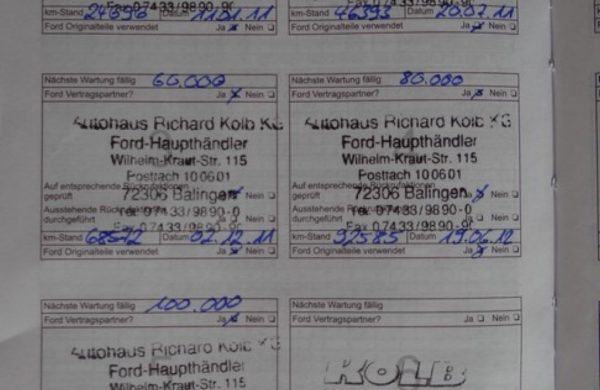 km-Stand 24696 Datum 11.01.11
Ford Originalteile verwendet Ja Nein
km-Stand 46393 Datum 20.07.11
Ford Originalteile verwendet Ja Nein
Nächste Wartung fällig 60.000
Ford Vertragspartner? Ja Nein
Autohaus Richard Kolb KG
Ford-Haupthändler
Wilhelm-Kraut-Str. 115
Postfach 10 06 01
Auf entsprechende Rückrufaktionen
geprüft 72306 Balingen Nein
Ausstehende
durchgeführt Tel. 0 74 33 / 98 90 - 0 Nein
Fax 0 74 33 / 98 90
km-Stand 68572 Datum 02.12.11
Ford Originalteile verwendet Ja Nein
Nächste Wartung fällig 80.000
Ford Vertragspartner? Ja Nein
Autohaus Richard Kolb KG
Ford-Haupthändler
Wilhelm-Kraut-Str. 115
Postfach 10 06 01
Auf entsprechende Rückrufaktionen
geprüft 72306 Balingen Ja Nein
Ausstehende
durchgeführt Tel. 0 74 33 / 98 90 - 0 Ja Nein
Fax 0 74 33 / 98 90
km-Stand 92585 Datum 19.06.12
Ford Originalteile verwendet Ja Nein
Nächste Wartung fällig 100.000
Ford Vertragspartner? Ja Nein
Autohaus Richard Kolb KG
Ford-Haupthändler
Wilhelm-Kraut-Str. 115
Nächste Wartung fällig
Ford Vertragspartner? Ja Nein
KOLB